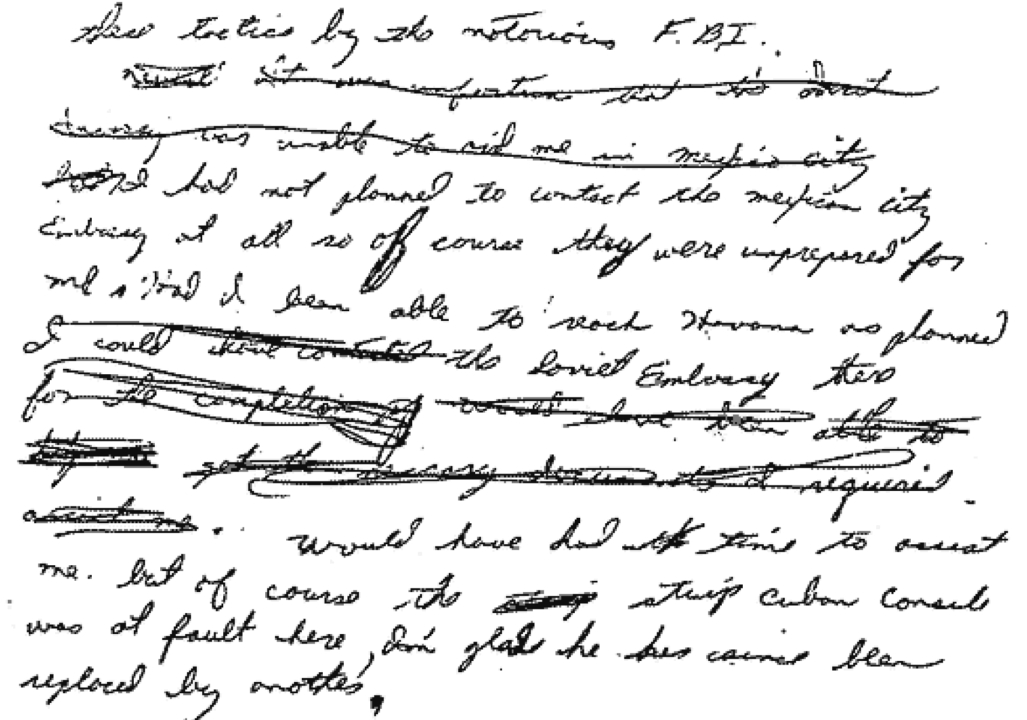 these tactics by the notorious F.B.I..
it was unfortunate that the Soviet
Embassy was unable to aid me in Mexico City
I had not planned to contact the Mexican City
Embassy at all so of course they were unprepared for
me. Had I been able to reach Havana as planned
I could have contacted the Soviet Embassy there
for the completion of would have been able to
get the necessary documents I required
assist me. would have had the time to assist
me. but of course the stuip Cuban Consule
was at fault here, I'm glad he has since been
replaced by another.